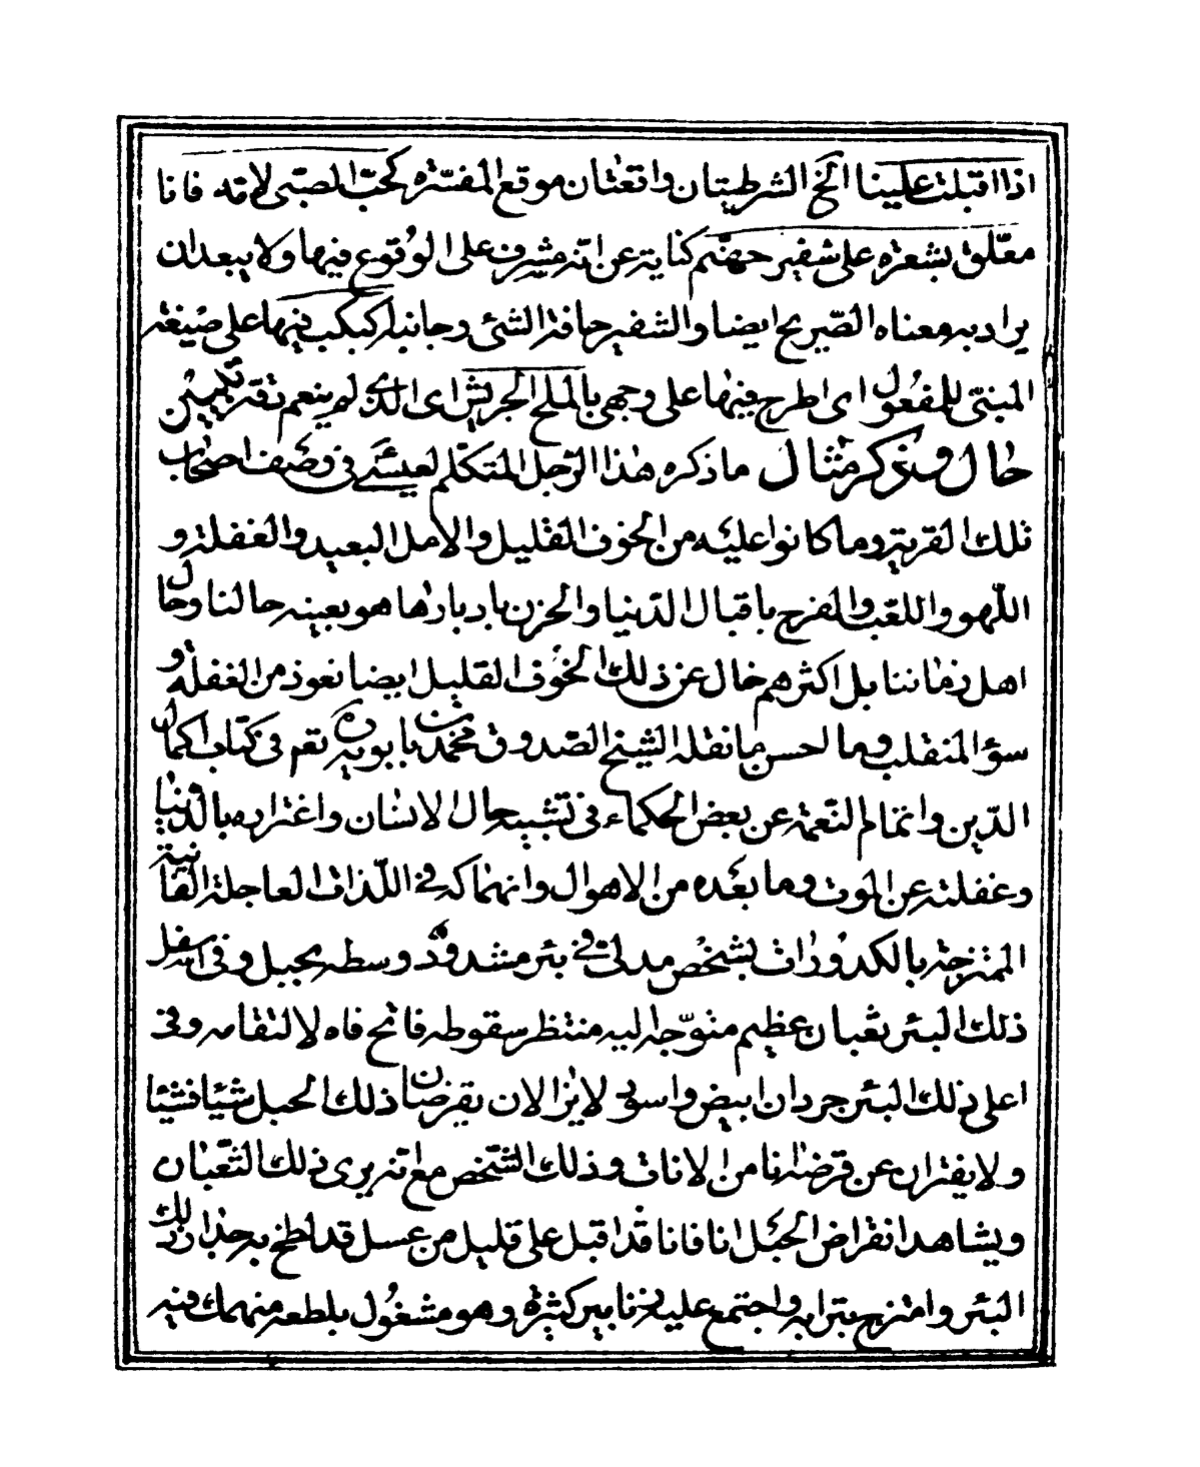 اذا اقبلت علينا الخ الشرطيتان واقعتان موقع المفسّرة كحبّ الصبّى لامّه فانا
معلّق بشعرة على شفير جهنّم كناية عن انّه مشرف على الوقوع فيها ولا يبعد ان
يراد به معناه الصّريح ايضا والشفير حافة الشئ وجانبه اكبكب فيها على صيغة
المبنى للمفعول اى اطرح فيها على وجهى بالملح الجريش اى الذى لم ينعم دقه تكميل من
حال وتذكر مثال ما ذكره هذا الرّجل المتكلّم لعيسى فى وصف اصحاب
تلك القرية وما كانوا عليه من الخوف القليل والامل البعيد والغفلة و
اللّهو واللعب والفرح باقبال الدّنيا والحزن بادبارها هو بعينه حالنا وحال
اهل زماننا بل اكثرهم خال عن ذلك الخوف القليل ايضا نعوذ من الغفلة و
سؤ المنقلب وما احسن ما نقله الشيخ الصّدوق محمّد بن بابويه ره تعم فى كتاب اكمال
الدّين واتمام النّعمة عن بعض الحكماء فى تشبيه حال الانسان واغتراره بالدّنيا
وغفلته عن الموت وما بعده من الاهوال وانهماكه فى اللّذات العاجلة الفانية
الممتزجة بالكدورات بشخص مدلى فى بئر مشدود وسطه بحبل وفى اسفل
ذلك البئر ثعبان عظيم متوّجه اليه منتظر سقوطه فاتح فاه لالتقامه وفى
اعلى ذلك البئر جردان ابيض واسود لا يزالان يقرضان ذلك الحبل شيئا فشيئا
ولا يفتران عن قرضه انا من الانات وذلك الشّخص مع انّه يرى ذلك الثّعبان
ويشاهد انقراض الحبل انا فانا قد اقبل على قليل من عسل قد لطخ به جدار ذلك
البئر وامتزج بترابه واجتمع عليه زنابير كثيرة وهو مشغول بلطعه منهمك فيه